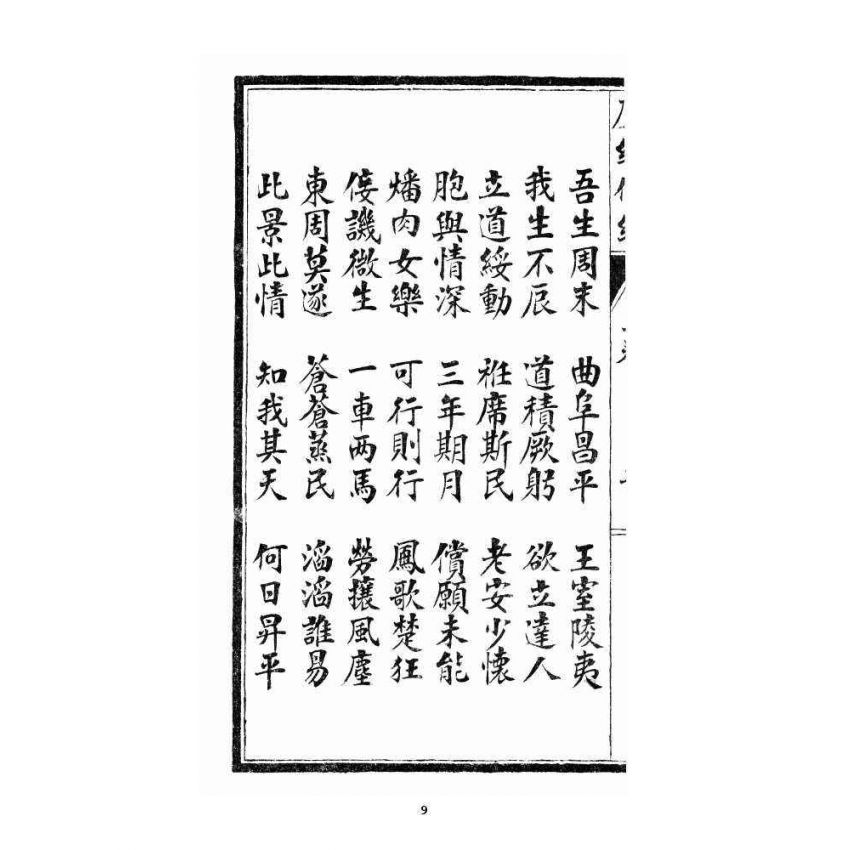 吾生周末 曲阜昌平 王室陵夷
我生不辰 道積厥躬 欲立達人
立道綏動 袵席斯民 老安少懷
胞與情深 三年期月 償願未能
燔肉女樂 可行則行 鳳歌楚狂
佞譏微生 一車两馬 勞攘風塵
東周莫遂 蒼蒼蒸民 滔滔誰易
此景此情 知我其天 何日昇平
9